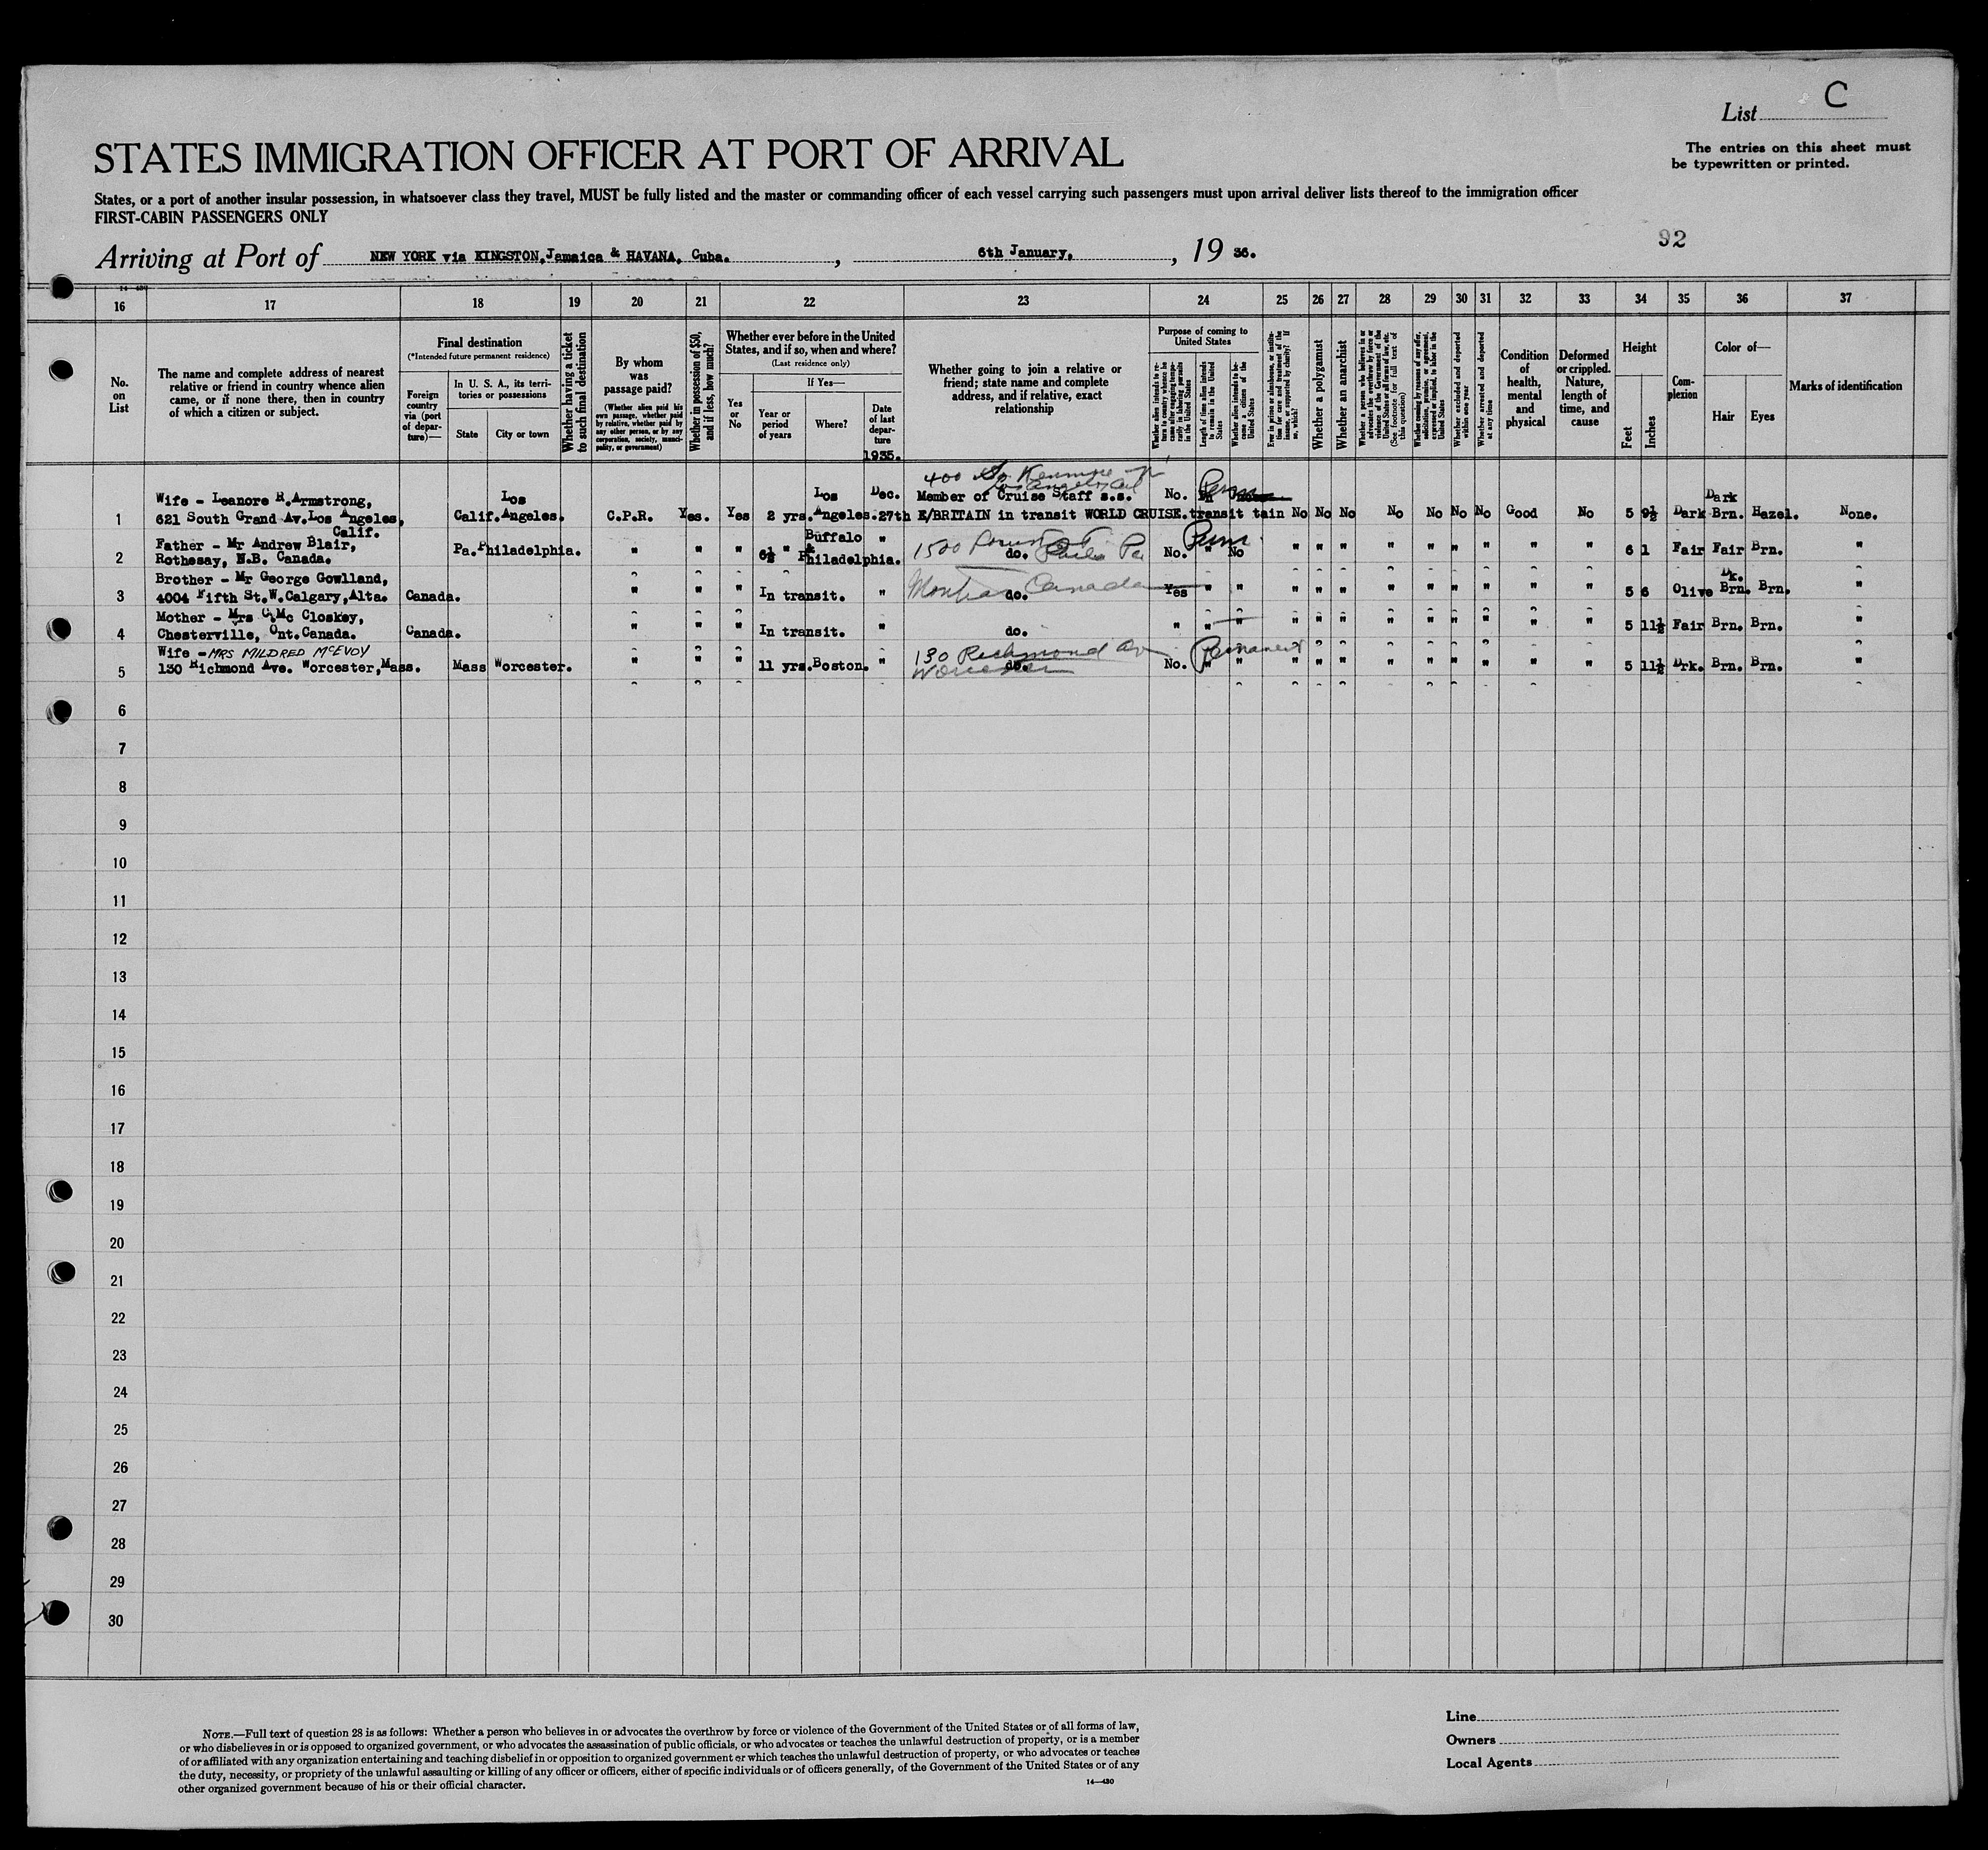 List C
The entries on this sheet must
be typewritten or printed.
STATES IMMIGRATION OFFICER AT PORT OF ARRIVAL
States, or a port of another insular possession, in whatsoever class they travel, MUST be fully listed and the master or commanding officer of each vessel carrying such passengers must upon arrival deliver lists thereof to the immigration officer
FIRST-CABIN PASSENGERS ONLY
92
Arriving at Port of NEW YORK via KINGSTON, Jamaica & HAVANA, Cuba. , 6th January, , 19 36.
16 17 18 19 20 21 22 23 24 25 26 27 28 29 30 31 32 33 34 35 36 37
No. on List
The name and complete address of nearest
relative or friend in country whence alien
came, or if none there, then in country
of which a citizen or subject.
Final destination
(*Intended future permanent residence)
Foreign country via (port of departure)—
In U. S. A., its territories or possessions
State
City or town
Whether having a ticket to such final destination
By whom was passage paid?
(Whether alien paid his own passage, whether paid by relative, whether paid by any other person, or by any corporation, society, municipality, or government)
Whether in possession of $50, and if less, how much?
Whether ever before in the United
States, and if so, when and where?
(Last residence only)
Yes or No
If Yes—
Year or period of years
Where?
Date of last departure
1935.
Whether going to join a relative or
friend; state name and complete
address, and if relative, exact
relationship
Purpose of coming to United States
Whether alien intends to return to country whence he came after engaging temporarily in laboring pursuits in the United States
Length of time alien intends to remain in the United States
Whether alien intends to become a citizen of the United States
Ever in prison or almshouse, or institution for care and treatment of the insane, or supported by charity? If so, which?
Whether a polygamist
Whether an anarchist
Whether a person who believes in or advocates the overthrow by force or violence of the Government of the United States or all forms of law, etc. (See footnote for full text of this question)
Whether coming by reason of any offer, solicitation, promise, or agreement, expressed or implied, to labor in the United States
Whether excluded and deported within one year
Whether arrested and deported at any time
Condition of health, mental and physical
Deformed or crippled. Nature, length of time, and cause
Height
Feet
Inches
Complexion
Color of—
Hair
Eyes
Marks of identification
400 So Kenmore
Los Angeles Cal
Wife - Leanore R. Armstrong, Los Los Dec. Member of Cruise Staff s.s. No. Perm Dark
1 621 South Grand Av. Los Angeles, Calif. Angeles. C.P.R. Yes. Yes 2 yrs. Angeles. 27th E/BRITAIN in transit WORLD CRUISE. transit tain No No No No No No No Good No 5 9½ Dark Brn. Hazel. None.
Calif.
Father - Mr Andrew Blair, Buffalo " Perm
2 Rothesay, N.B. Canada. Pa. Philadelphia. " " " 6½ " & Philadelphia. 1500 do. Phila Pa No. " No " " " " " " " " " 6 1 Fair Fair Brn. "
Brother - Mr George Gowlland, Dk.
3 4004 Fifth St. W. Calgary, Alta. Canada. " " " In transit. " do. Canada Yes " " " " " " " " " " " 5 6 Olive Brn. Brn. "
Mother - Mrs C. Mc Closkey,
4 Chesterville, Ont. Canada. Canada. " " " In transit. " do. " " " " " " " " " " " " 5 11½ Fair Brn. Brn. "
Wife - MRS MILDRED McEVOY 130 Richmond Av Permanent
5 130 Richmond Ave. Worcester, Mass. Mass Worcester. " " " 11 yrs. Boston. " do. Worcester No. " " " " " " " " " " " 5 11½ Drk. Brn. Brn. "
6
7
8
9
10
11
12
13
14
15
16
17
18
19
20
21
22
23
24
25
26
27
28
29
30
NOTE.—Full text of question 28 is as follows: Whether a person who believes in or advocates the overthrow by force or violence of the Government of the United States or of all forms of law,
or who disbelieves in or is opposed to organized government, or who advocates the assassination of public officials, or who advocates or teaches the unlawful destruction of property, or is a member
of or affiliated with any organization entertaining and teaching disbelief in or opposition to organized government or which teaches the unlawful destruction of property, or who advocates or teaches
the duty, necessity, or propriety of the unlawful assaulting or killing of any officer or officers, either of specific individuals or of officers generally, of the Government of the United States or of any
other organized government because of his or their official character.
14—430
Line
Owners
Local Agents